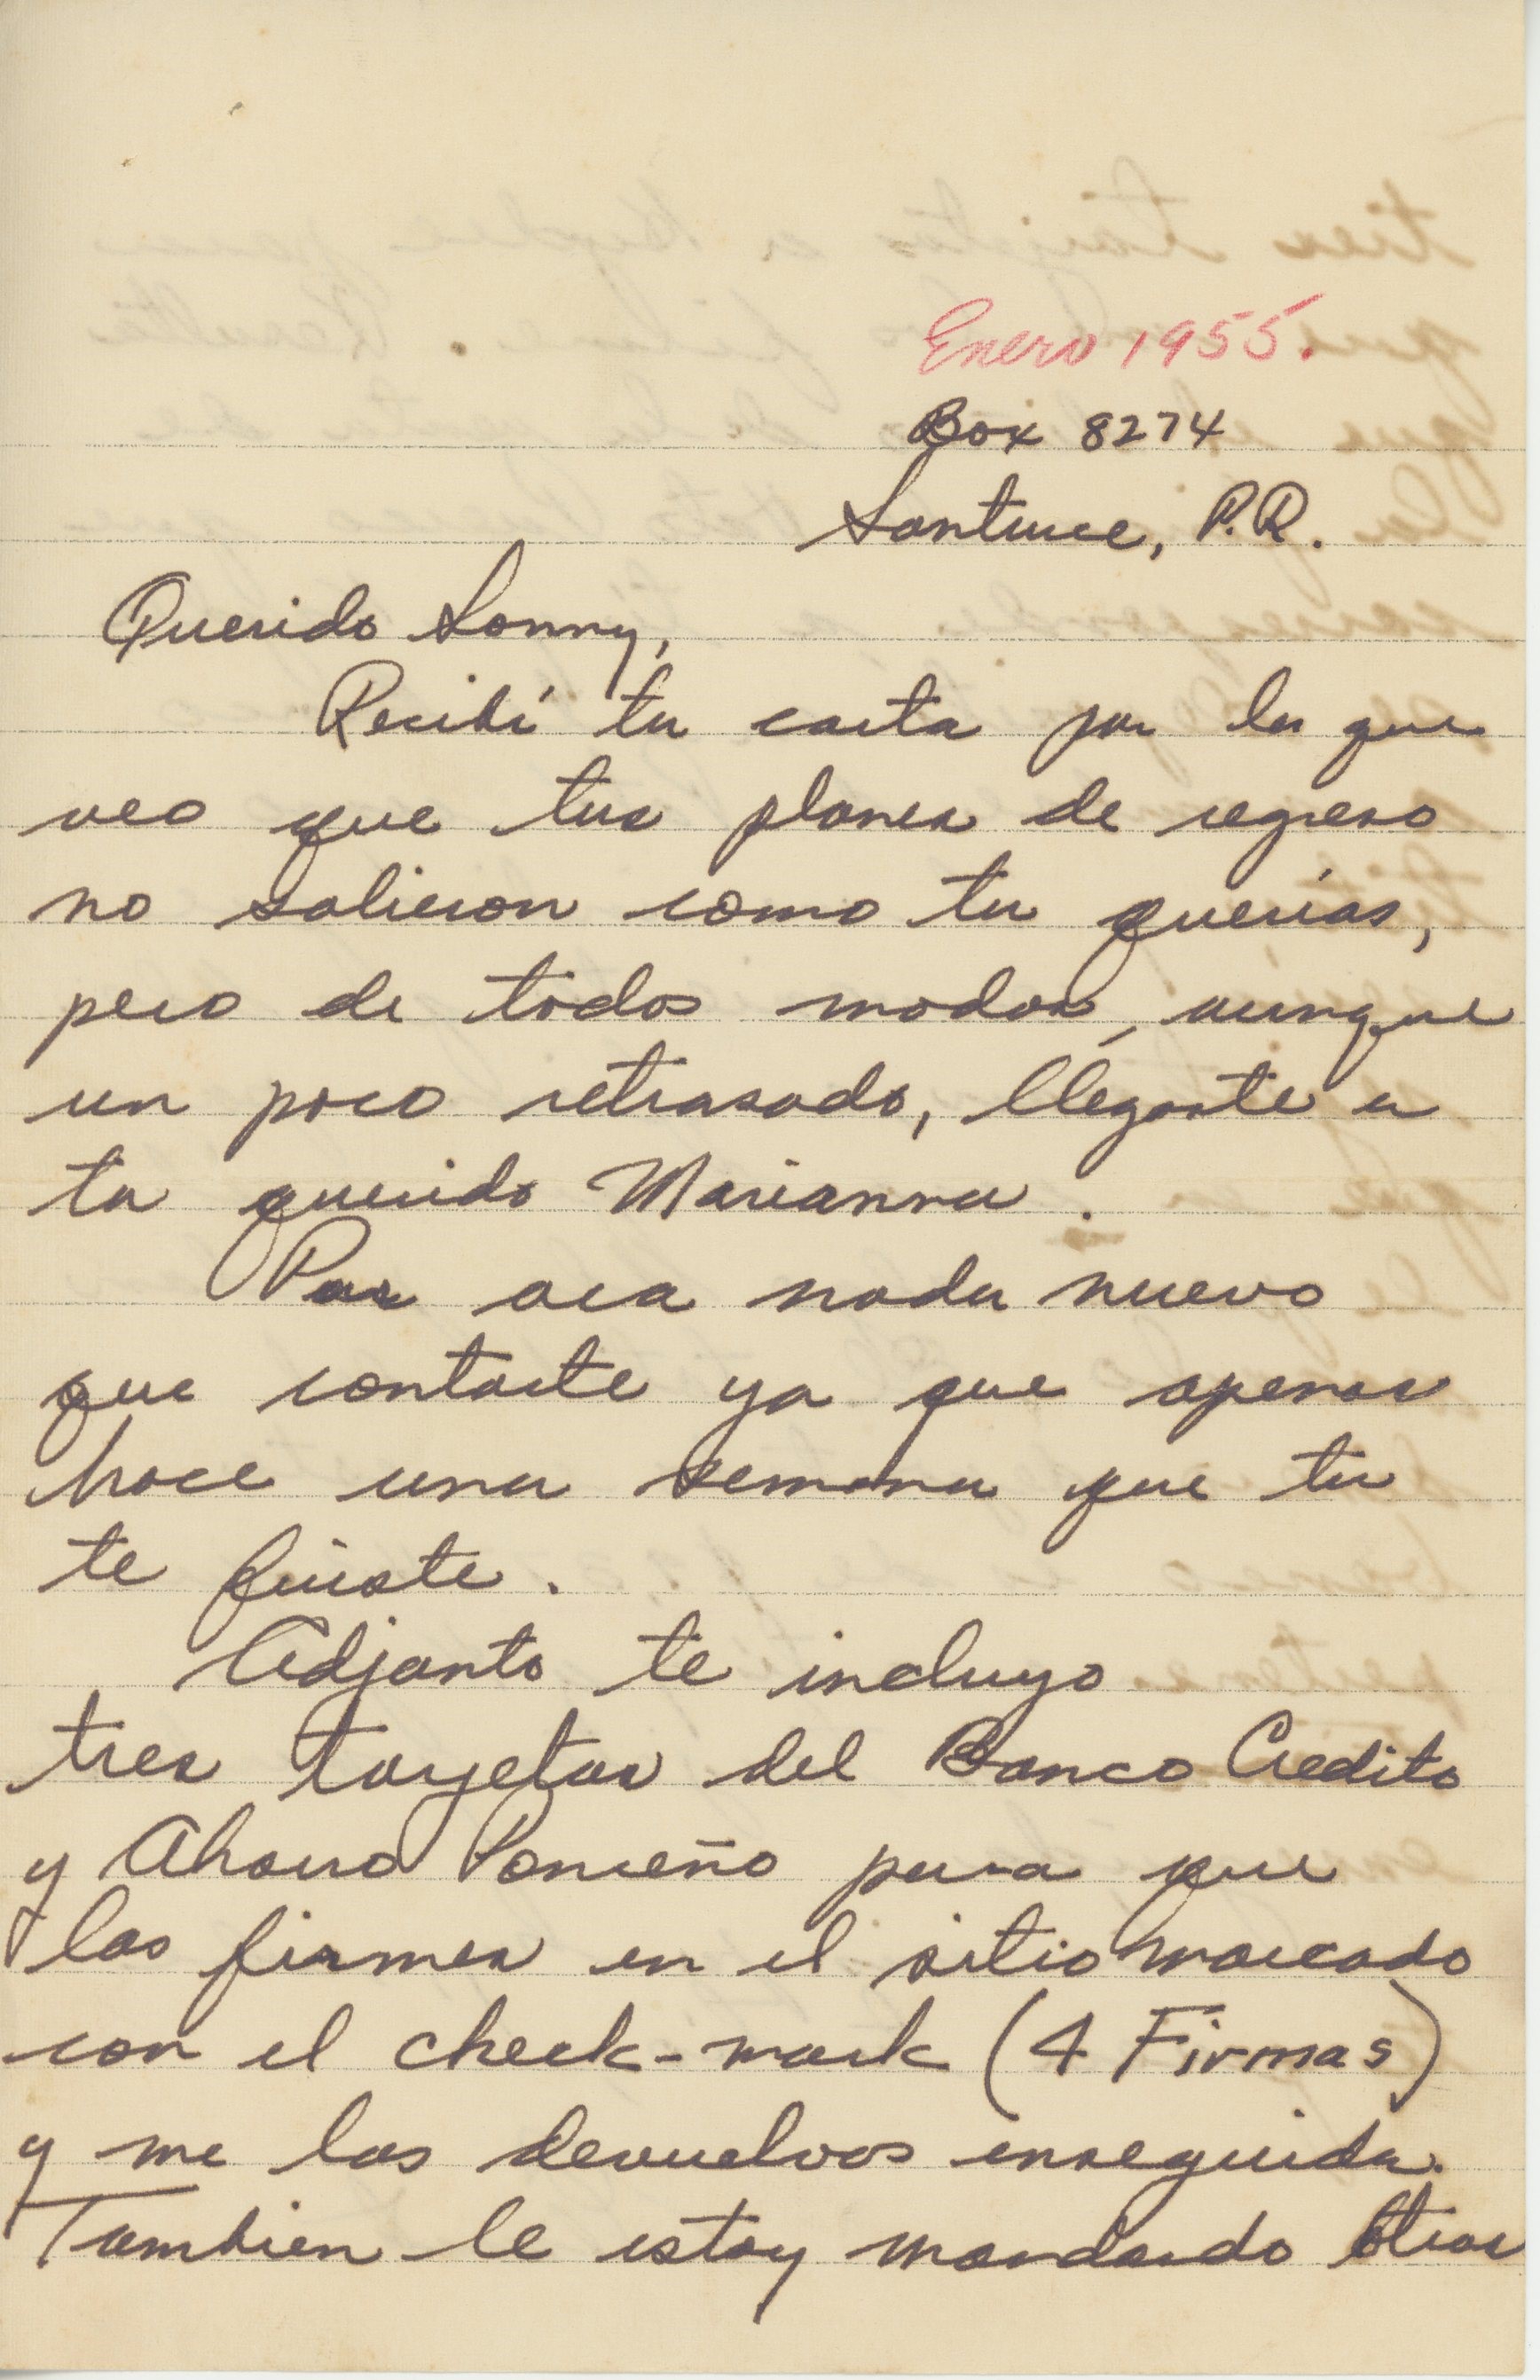 Enero 1955.
Box 8274
Santurce, P.R.
Querido Sonny,
Recibí tu carta por la que
veo que tus planes de regreso
no salieron como tu querías,
pero de todos modos, aunque
un poco retrasado, llegaste a
tu querido Marianna.
Por aca nada nuevo
que contarte ya que apenas
hace una semana que tu
te fuiste.
Adjanto te incluyo
tres tarjetas del Banco Credito
y Ahorro Ponceño para que
las firmes en el sitio marcado
con el check-mark (4 Firmas)
y me las devuelvas enseguida.
Tambien le estoy mandando otras